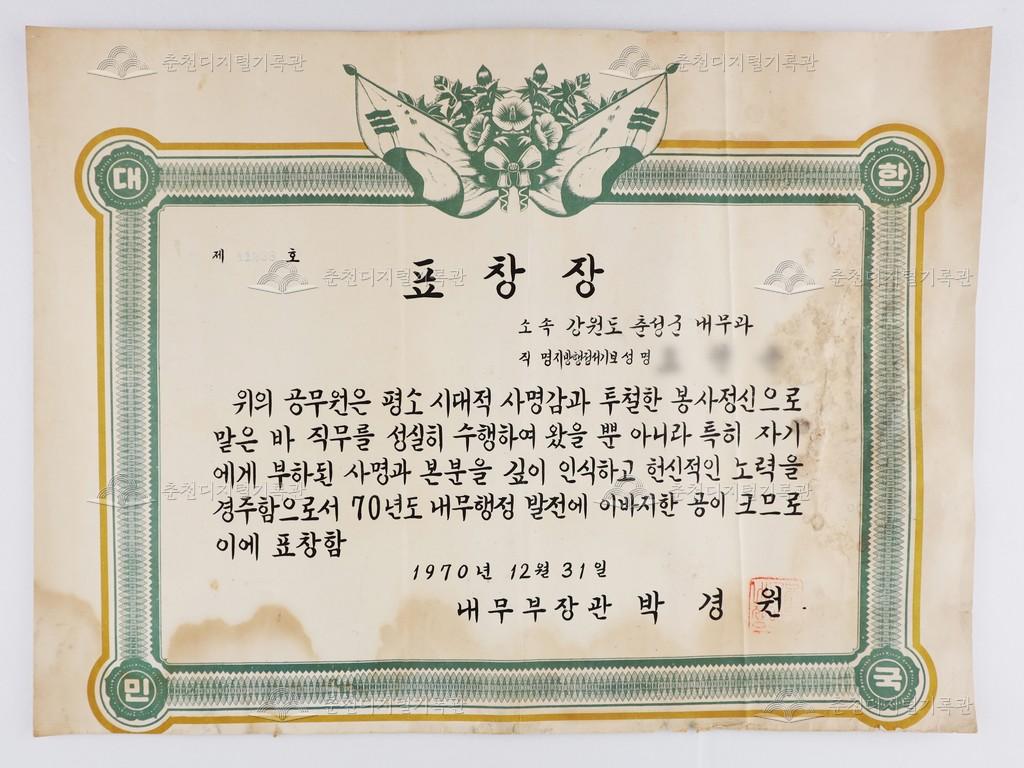 춘천디지털기록관 춘천디지털기록관
대 한
제 호
표창장
춘천디지털기록관 춘천디지털기록관
소속 강원도 춘성군 내무과
직 명 지방행정서기보 성 명
위의 공무원은 평소 시대적 사명감과 투철한 봉사정신으로
맡은 바 직무를 성실히 수행하여 왔을 뿐 아니라 특히 자기
에게 부하된 사명과 본분을 깊이 인식하고 헌신적인 노력을
춘천디지털기록관 춘천디지털기록관
경주함으로서 70년도 내무행정 발전에 이바지한 공이 크므로
이에 표창함
1970년 12월 31일
내무부장관 박경원
민 국
춘천디지털기록관 춘천디지털기록관